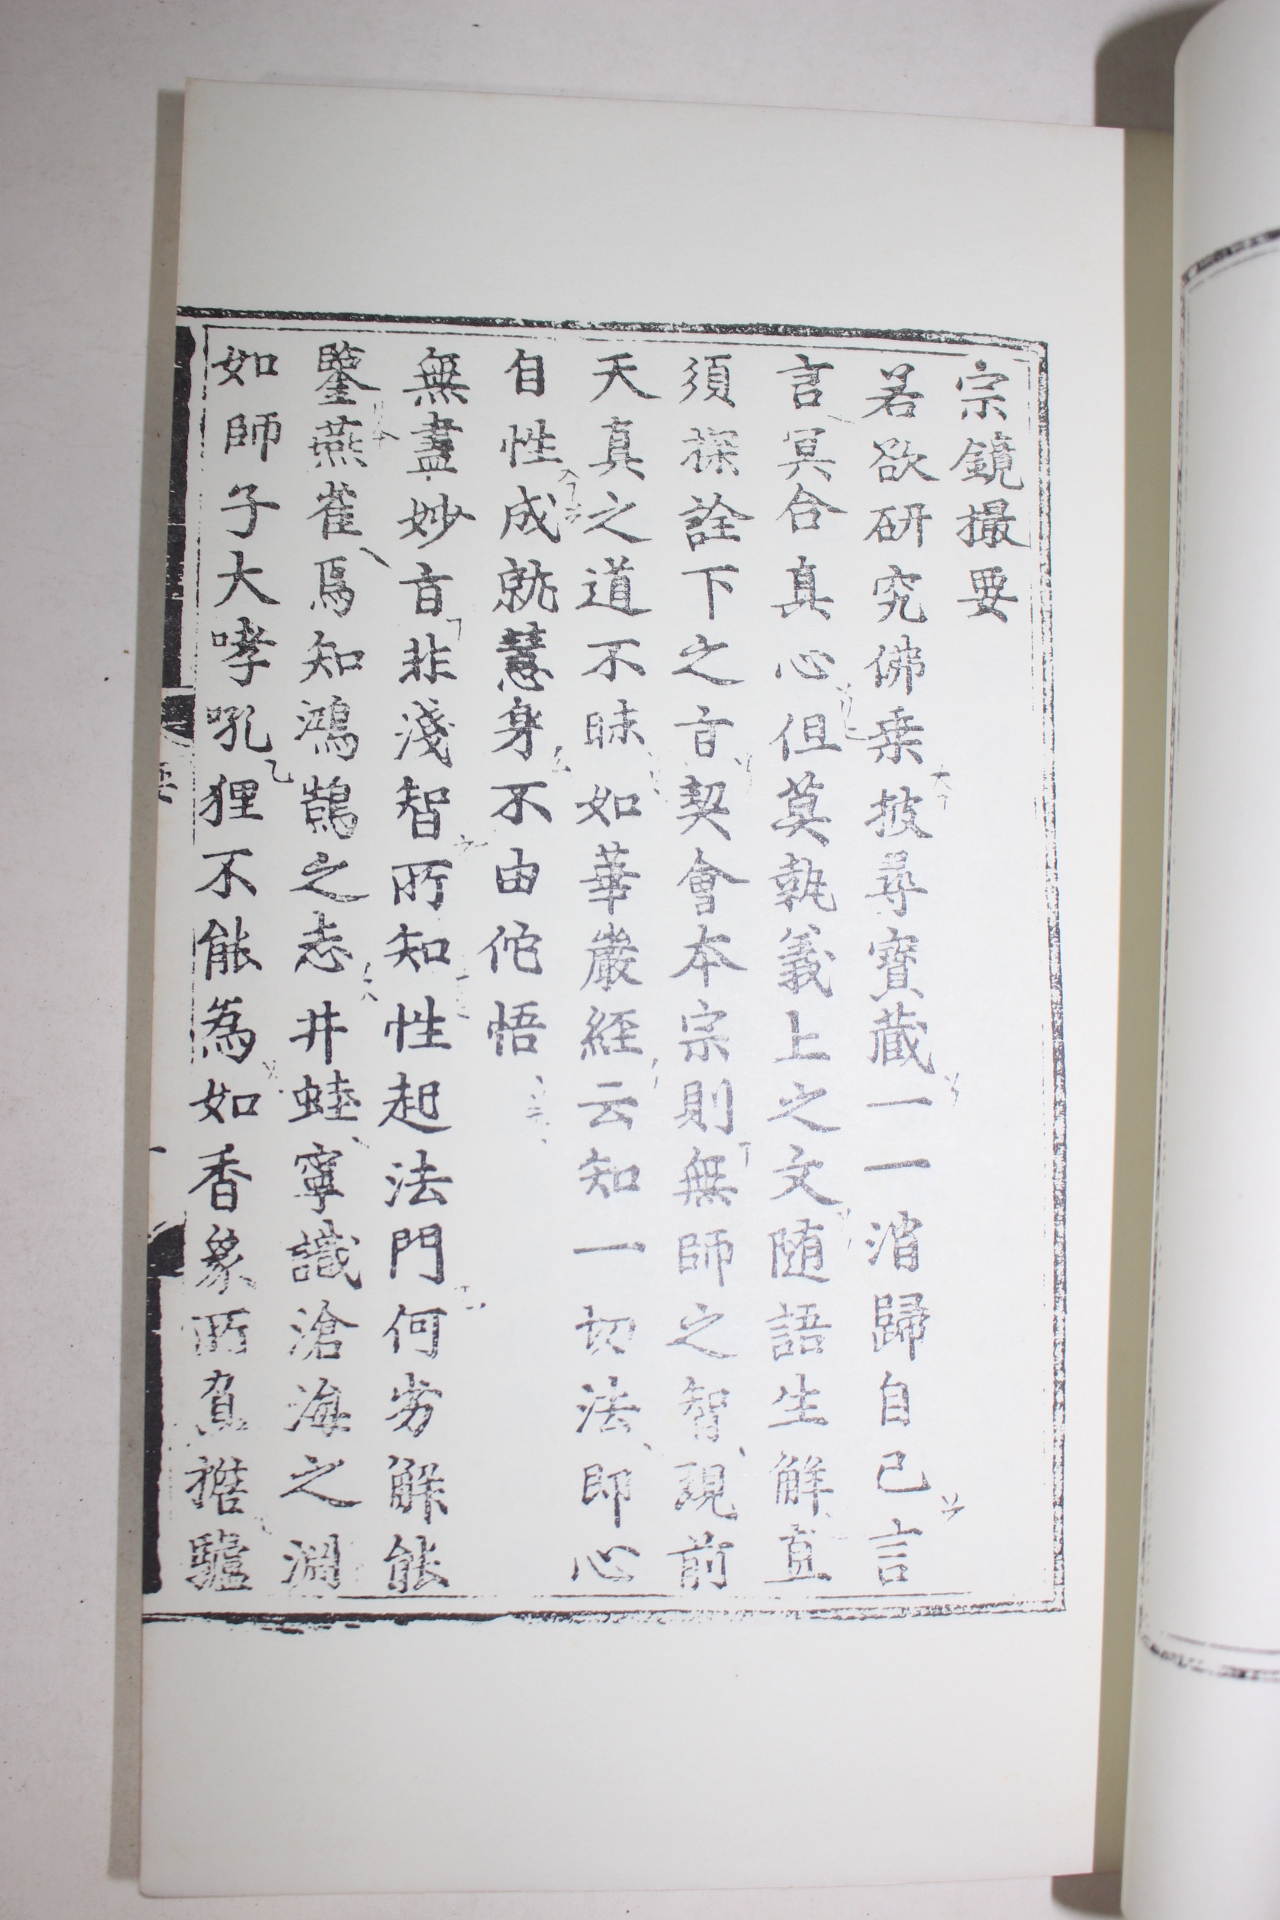 宗鏡撮要
若欲研究佛乗披尋寶蔵一一消歸自己言
言冥合真心但莫執義上之文随語生解直
須探詮下之㫖契會本宗則無師之智現前
天真之道不昧如華嚴經云知一切法即心
自性成就慧身不由佗悟
無盡妙音非淺智所知性起法門何劣解能
鑒燕雀焉知鴻鵠之志井蛙寧識滄海之淵
如師子大哮吼狸不能為如香象所負擔驢